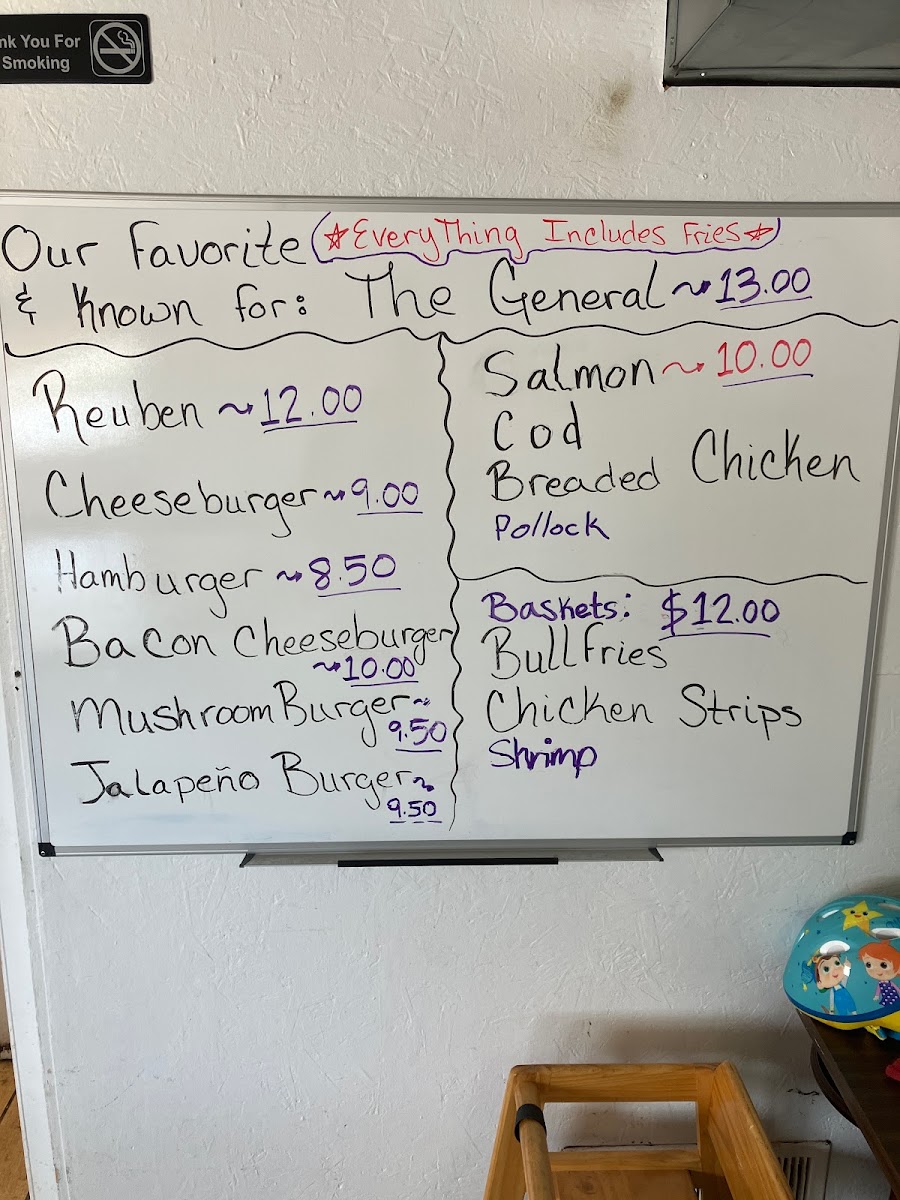 nk You For
Smoking
Our Favorite *EveryThing Includes Fries*
& Known for: The General ~ 13.00
Reuben ~ 12.00
Cheeseburger ~ 9.00
Hamburger ~ 8.50
Bacon Cheeseburger
~ 10.00
Mushroom Burger ~
9.50
Jalapeño Burger ~
9.50
Salmon ~ 10.00
Cod
Breaded Chicken
Pollock
Baskets: $12.00
Bull Fries
Chicken Strips
Shrimp